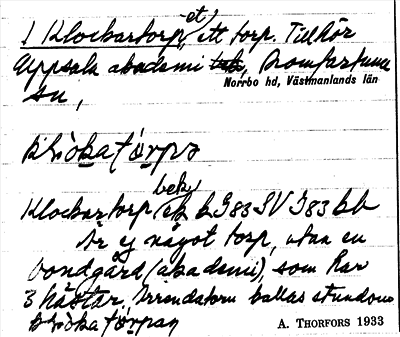 1 Klockartorp, et ett torp. Tillhör
Uppsala akademi, Romfartuna
sn,
Norrbo hd, Västmanlands län
Klockartorp bek. ek b I 83 SV I 83 bb
Är ej något torp, utan en
bondgård (akademi), som har
3 hästar. Arrendatorn kallas stundom
A. THORFORS 1933